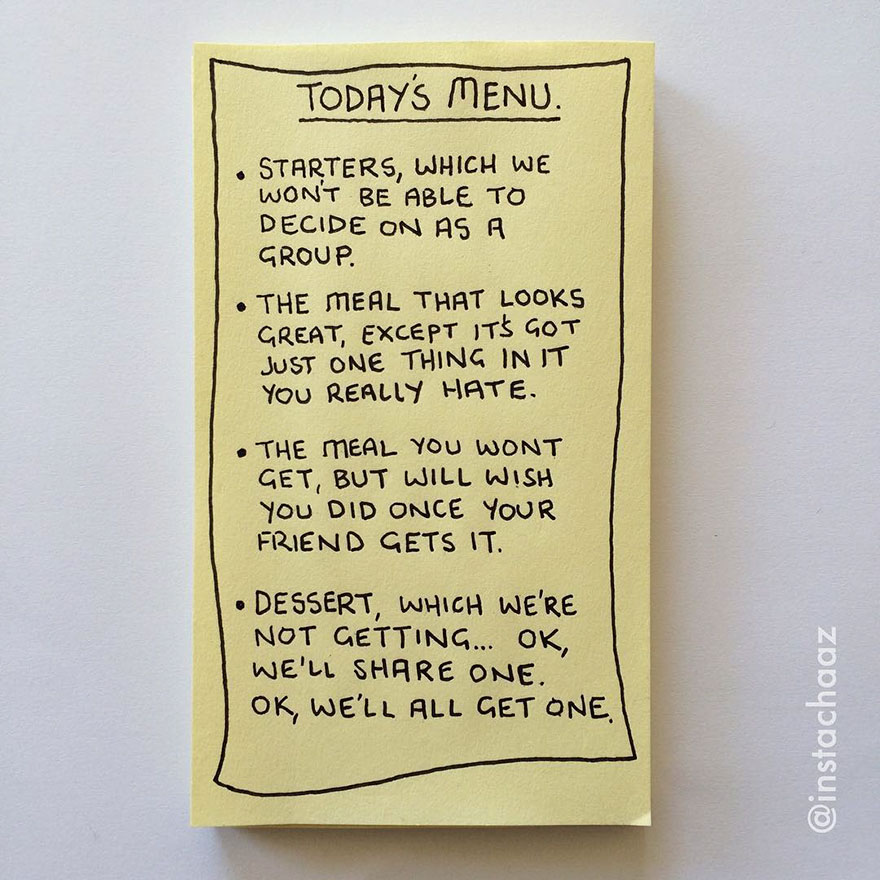 TODAY'S MENU.
• STARTERS, WHICH WE
WON'T BE ABLE TO
DECIDE ON AS A
GROUP.
• THE MEAL THAT LOOKS
GREAT, EXCEPT IT'S GOT
JUST ONE THING IN IT
YOU REALLY HATE.
• THE MEAL YOU WONT
GET, BUT WILL WISH
YOU DID ONCE YOUR
FRIEND GETS IT.
• DESSERT, WHICH WE'RE
NOT GETTING... OK,
WE'LL SHARE ONE.
OK, WE'LL ALL GET ONE.
@instachaaz